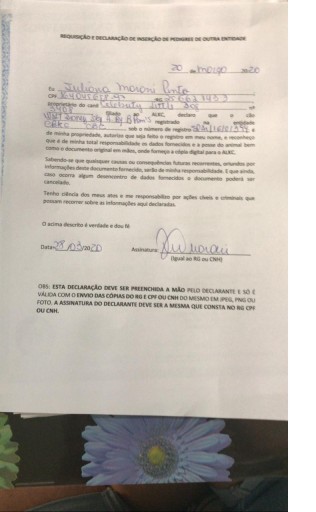 REQUISIÇÃO E DECLARAÇÃO DE INSERÇÃO DE PEDIGREE DE OUTRA ENTIDADE
20 de março 2020
Eu Juliana Moroni Pinto
CPF RG
proprietário do canil nº
filiado ao ALKC, declaro que o cão
registrado na entidade
sob o número de registro é
de minha propriedade, autorizo que seja feito o registro em meu nome, e reconheço
que é de minha total responsabilidade os dados fornecidos e a posse do animal bem
como o documento original em mãos, onde forneço a cópia digital para o ALKC.
Sabendo-se que quaisquer causas ou consequências futuras recorrentes, oriundos por
informações deste documento fornecido, serão de minha responsabilidade. E que ainda,
caso ocorra algum desencontro de dados fornecidos o documento poderá ser
cancelado.
Tenho ciência dos meus atos e me responsabilizo por ações cíveis e criminais que
possam recorrer sobre as informações aqui declaradas.
O acima descrito é verdade e dou fé
Data= /03/2020 Assinatura:
(igual ao RG ou CNH)
OBS: ESTA DECLARAÇÃO DEVE SER PREENCHIDA A MÃO PELO DECLARANTE E SÓ É
VÁLIDA COM O ENVIO DAS CÓPIAS DO RG E CPF OU CNH DO MESMO EM JPEG, PNG OU
FOTO. A ASSINATURA DO DECLARANTE DEVE SER A MESMA QUE CONSTA NO RG CPF
OU CNH.